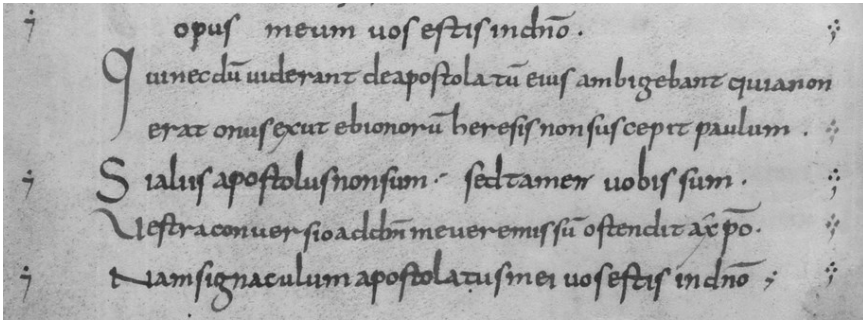 opus meum uos estis in dnō .
Qui necdū uiderant de apostolatū eius ambigebant quia non
erat onus exut ebionorū heresis non suscepit paulum .
Si aliis apostolus non sum · sed tamen uobis sum .
Uestra conuersio ad dn̄m me uere missū ostendit a x̄pō .
Nam signaculum apostolatus mei uos estis in dnō ;